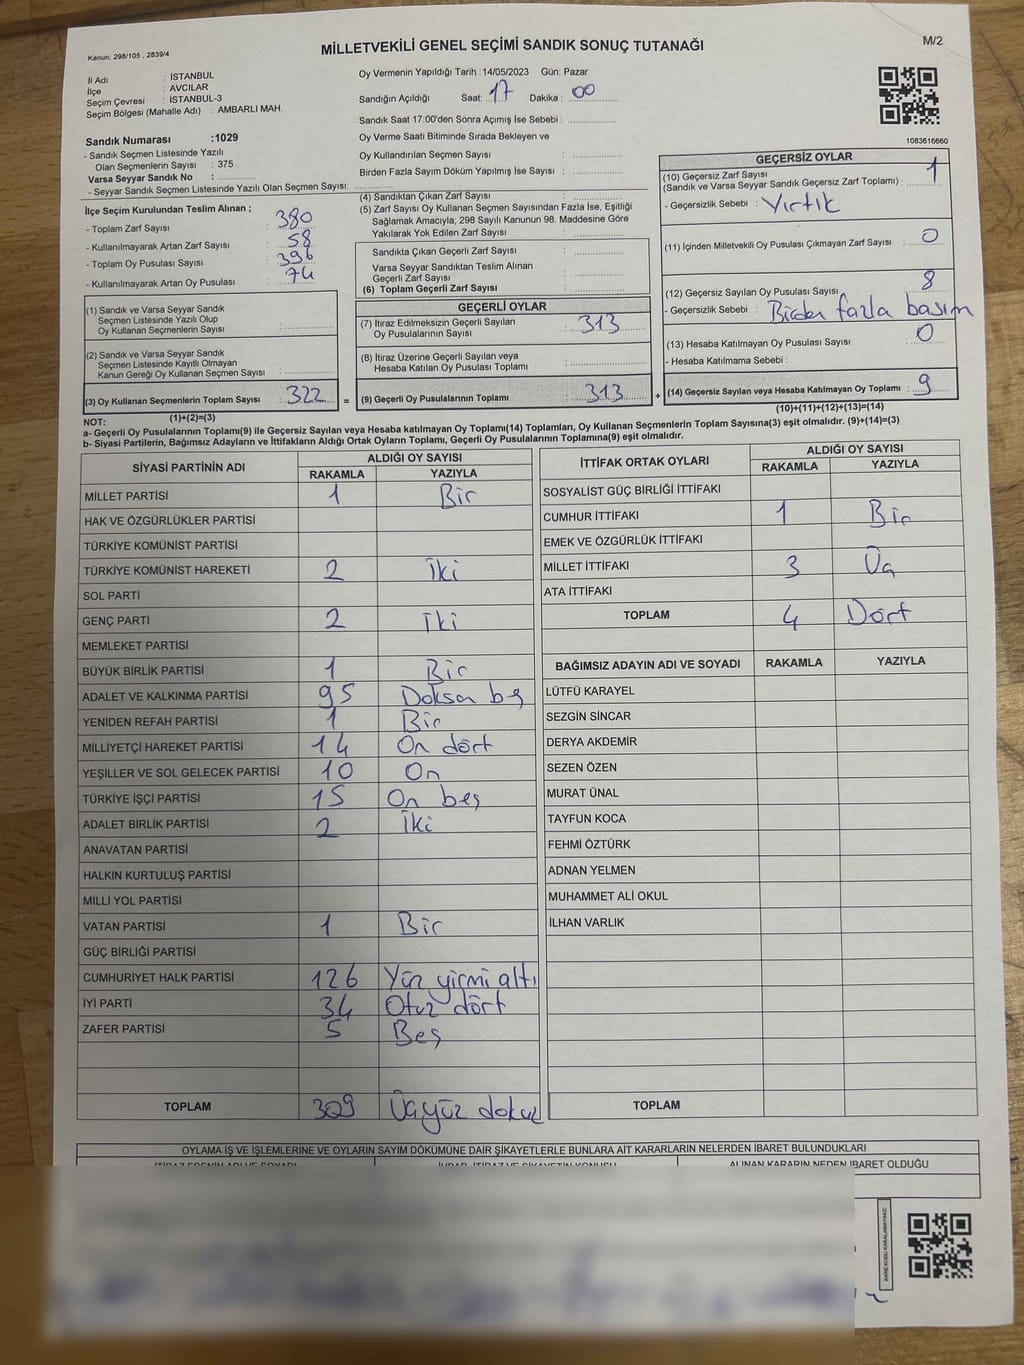 Kanun: 298/105 , 2839/4
MİLLETVEKİLİ GENEL SEÇİMİ SANDIK SONUÇ TUTANAĞI
M/2
İl Adı : İSTANBUL
İlçe : AVCILAR
Seçim Çevresi : İSTANBUL-3
Seçim Bölgesi (Mahalle Adı) : AMBARLI MAH.
Oy Vermenin Yapıldığı Tarih : 14/05/2023 Gün: Pazar
Sandığın Açıldığı Saat: 17 Dakika : 00
Sandık Saat 17.00'den Sonra Açımış İse Sebebi :
Oy Verme Saati Bitiminde Sırada Bekleyen ve
Oy Kullandırılan Seçmen Sayısı :
Birden Fazla Sayım Döküm Yapılmış İse Sayısı :
1083616660
Sandık Numarası : 1029
- Sandık Seçmen Listesinde Yazılı
Olan Seçmenlerin Sayısı : 375
Varsa Seyyar Sandık No :
- Seyyar Sandık Seçmen Listesinde Yazılı Olan Seçmen Sayısı:
İlçe Seçim Kurulundan Teslim Alınan ;
- Toplam Zarf Sayısı : 380
- Kullanılmayarak Artan Zarf Sayısı : 58
- Toplam Oy Pusulası Sayısı : 396
- Kullanılmayarak Artan Oy Pusulası : 74
(1) Sandık ve Varsa Seyyar Sandık
Seçmen Listesinde Yazılı Olup
Oy Kullanan Seçmenlerin Sayısı :
(2) Sandık ve Varsa Seyyar Sandık
Seçmen Listesinde Kayıtlı Olmayan
Kanun Gereği Oy Kullanan Seçmen Sayısı :
(3) Oy Kullanan Seçmenlerin Toplam Sayısı : 322 =
(1)+(2)=(3)
(4) Sandıktan Çıkan Zarf Sayısı :
(5) Zarf Sayısı Oy Kullanan Seçmen Sayısından Fazla İse, Eşitliği
Sağlamak Amacıyla; 298 Sayılı Kanunun 98. Maddesine Göre
Yakılarak Yok Edilen Zarf Sayısı :
Sandıkta Çıkan Geçerli Zarf Sayısı :
Varsa Seyyar Sandıktan Teslim Alınan
Geçerli Zarf Sayısı :
(6) Toplam Geçerli Zarf Sayısı :
GEÇERLİ OYLAR
(7) İtiraz Edilmeksizin Geçerli Sayılan
Oy Pusulalarının Sayısı : 313
(8) İtiraz Üzerine Geçerli Sayılan veya
Hesaba Katılan Oy Pusulası Toplamı :
(9) Geçerli Oy Pusulalarının Toplamı : 313 +
GEÇERSİZ OYLAR
(10) Geçersiz Zarf Sayısı
(Sandık ve Varsa Seyyar Sandık Geçersiz Zarf Toplamı) : 1
- Geçersizlik Sebebi : Yırtık
(11) İçinden Milletvekili Oy Pusulası Çıkmayan Zarf Sayısı : 0
(12) Geçersiz Sayılan Oy Pusulası Sayısı : 8
- Geçersizlik Sebebi : Birden fazla basım
(13) Hesaba Katılmayan Oy Pusulası Sayısı : 0
- Hesaba Katılmama Sebebi :
(14) Geçersiz Sayılan veya Hesaba Katılmayan Oy Toplamı : 9
(10)+(11)+(12)+(13)=(14)
NOT:
a- Geçerli Oy Pusulalarının Toplamı(9) ile Geçersiz Sayılan veya Hesaba katılmayan Oy Toplamı(14) Toplamları, Oy Kullanan Seçmenlerin Toplam Sayısına(3) eşit olmalıdır. (9)+(14)=(3)
b- Siyasi Partilerin, Bağımsız Adayların ve İttifakların Aldığı Ortak Oyların Toplamı, Geçerli Oy Pusulalarının Toplamına(9) eşit olmalıdır.
SİYASİ PARTİNİN ADI ALDIĞI OY SAYISI
RAKAMLA YAZIYLA
MİLLET PARTİSİ 1 Bir
HAK VE ÖZGÜRLÜKLER PARTİSİ
TÜRKİYE KOMÜNİST PARTİSİ
TÜRKİYE KOMÜNİST HAREKETİ 2 İki
SOL PARTİ
GENÇ PARTİ 2 İki
MEMLEKET PARTİSİ
BÜYÜK BİRLİK PARTİSİ 1 Bir
ADALET VE KALKINMA PARTİSİ 95 Doksan beş
YENİDEN REFAH PARTİSİ 1 Bir
MİLLİYETÇİ HAREKET PARTİSİ 14 On dört
YEŞİLLER VE SOL GELECEK PARTİSİ 10 On
TÜRKİYE İŞÇİ PARTİSİ 15 On beş
ADALET BİRLİK PARTİSİ 2 İki
ANAVATAN PARTİSİ
HALKIN KURTULUŞ PARTİSİ
MİLLİ YOL PARTİSİ
VATAN PARTİSİ 1 Bir
GÜÇ BİRLİĞİ PARTİSİ
CUMHURİYET HALK PARTİSİ 126 Yüz yirmi altı
İYİ PARTİ 34 Otuz dört
ZAFER PARTİSİ 5 Beş
TOPLAM 309 Üçyüz dokuz
İTTİFAK ORTAK OYLARI ALDIĞI OY SAYISI
RAKAMLA YAZIYLA
SOSYALİST GÜÇ BİRLİĞİ İTTİFAKI
CUMHUR İTTİFAKI 1 Bir
EMEK VE ÖZGÜRLÜK İTTİFAKI
MİLLET İTTİFAKI 3 Üç
ATA İTTİFAKI
TOPLAM 4 Dört
BAĞIMSIZ ADAYIN ADI VE SOYADI RAKAMLA YAZIYLA
LÜTFÜ KARAYEL
SEZGİN SİNCAR
DERYA AKDEMİR
SEZEN ÖZEN
MURAT ÜNAL
TAYFUN KOCA
FEHMİ ÖZTÜRK
ADNAN YELMEN
MUHAMMET ALİ OKUL
İLHAN VARLIK
TOPLAM
OYLAMA İŞ VE İŞLEMLERİNE VE OYLARIN SAYIM DÖKÜMÜNE DAİR ŞİKAYETLERLE BUNLARA AİT KARARLARIN NELERDEN İBARET BULUNDUKLARI
ALINAN KARARIN NEDEN İBARET OLDUĞU